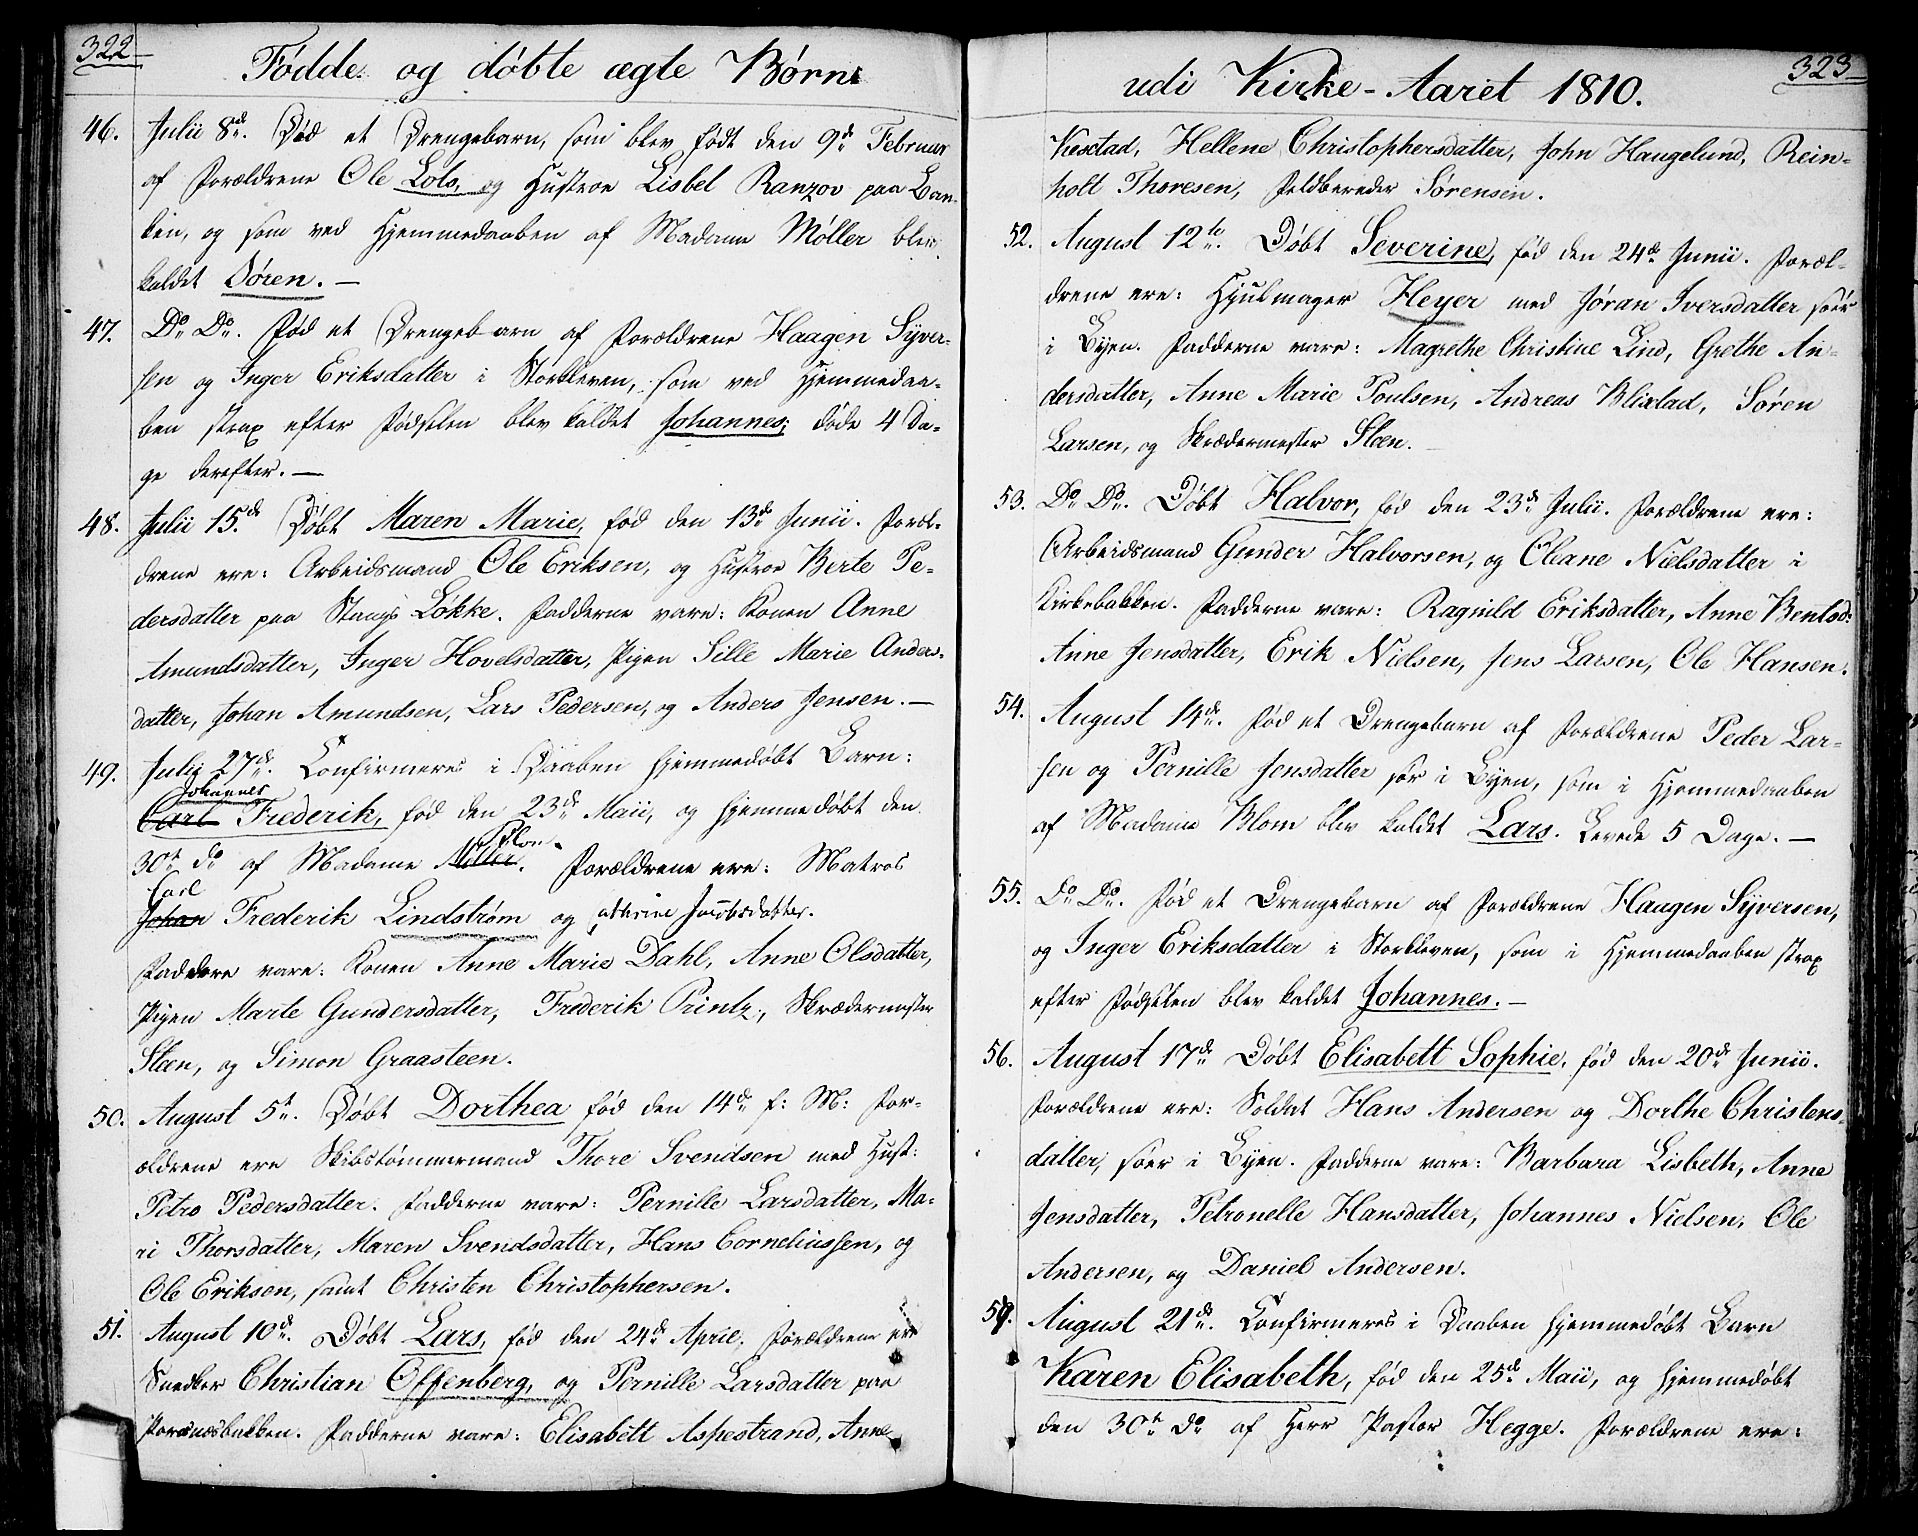 322
Fødde og døbte ægte Børn
46. Julii 8de. Død et Drengebarn, som blev født den 9de Februar
af Forældrene Ole Lols, og Hustroe Lisbel Ranzov paa Ban-
ken, og som ved Hjemmedaaben af Madame Møller blev
kaldet Søren. —
47. Do Do. Fød et Drengebarn af Forældrene Haagen Syver-
sen og Inger Eriksdatter i Storkleven, som ved Hjemmedaa-
ben strax efter Fødselen blev kaldet Johannes; døde 4 Da-
ge derefter. —
48. Julii 15de. Døbt Maren Marie, fød den 13de Junii. Foræl-
drene ere: Arbeidsmand Ole Eriksen, og Hustroe Berte Pe-
dersdatter paa Stangs Løkke. Fadderne vare: Konen Anne
Amundsdatter, Inger Hovelsdatter, Pigen Sille Marie Anders-
datter, Johan Amundsen, Lars Pedersen, og Anders Jensen. —
49. Julii 27de. Confirmeres i Daaben hjemmedøbt Barn:
Johannes
Carl Frederik, fød den 23de Maii, og hjemmedøbt den
Blom
30te do af Madame Møller. Forældrene ere: Matros
Carl
Johan Frederik Lindstrøm og Cathrine Jacobsdatter.
Faddere vare: Konen Anne Marie Dahl, Anne Olsdatter,
Pigen Marte Gundersdatter, Frederik Printz, Skrædermester
Steen, og Simon Graasteen.
50. August 5te. Døbt Dorthea fød den 14de f: M: For-
ældrene ere Skibstømmermand Thore Svendsen med Hust:
Petro Pedersdatter. Fadderne vare: Pernille Larsdatter, Ma-
ri Thorsdatter, Maren Svendsdatter, Hans Corneliussen, og
Ole Eriksen, samt Christen Christophersen.
51. August 10de. Døbt Lars, fød den 24de April. Forældrene ere
Snedker Christian Offenberg, og Pernille Larsdatter paa
Forsnæsbakken. Fadderne vare: Elisabett Aspestrand, Anne
323
udi Kirke-Aaret 1810.
Kæstad, Hellene Christophersdatter, John Haugelund, Rein-
holt Thoresen, Feldbereder Sørensen.
52. August 12te. Døbt Severine, fød den 24de Junii. Foræl-
drene ere: Hjulmager Heyer med Jøran Iversdatter søer
i Byen. Fadderne vare: Magrethe Christine Lind, Grethe An-
dersdatter, Anne Marie Poulsen, Andreas Blixlad, Søren
Larsen, og Skrædermester Steen.
53. Do Do. Døbt Halvor, fød den 23de Julii. Forældrene ere:
Arbeidsmand Gunder Halvorsen, og Oleane Nielsdatter i
Kirkebakken. Fadderne vare: Ragnild Eriksdatter, Anne Bentsd:
Anne Jensdatter, Erik Nielsen, Jens Larsen, Ole Hansen.
54. August 14de. Fød et Drengebarn af Forældrene Peder Lar-
sen og Pernille Jensdatter sør i Byen, som i Hjemmedaaben
af Madame Blom blev kaldet Lars. Levede 5 Dage. —
55. Do Do. Fød et Drengebarn af Forældrene Haagen Syversen,
og Inger Eriksdatter i Storkleven, som i Hjemmedaaben strax
efter Fødselen blev kaldet Johannes. —
56. August 17de Døbt Elisabett Sophie, fød den 20de Junii.
Forældrene ere: Soldat Hans Andersen og Dorthe Christens-
datter, søer i Byen. Fadderne vare: Barbara Lisbeth, Anne
Jensdatter, Petronelle Hansdatter, Johannes Nielsen, Ole
Andersen, og Daniel Andersen.
57. August 21de. Confirmeres i Daaben hjemmedøbt Barn
Karen Elisabeth, fød den 25de Maii, og hjemmedøbt
den 30te Do af Herr Pastor Hegge. Forældrene ere: